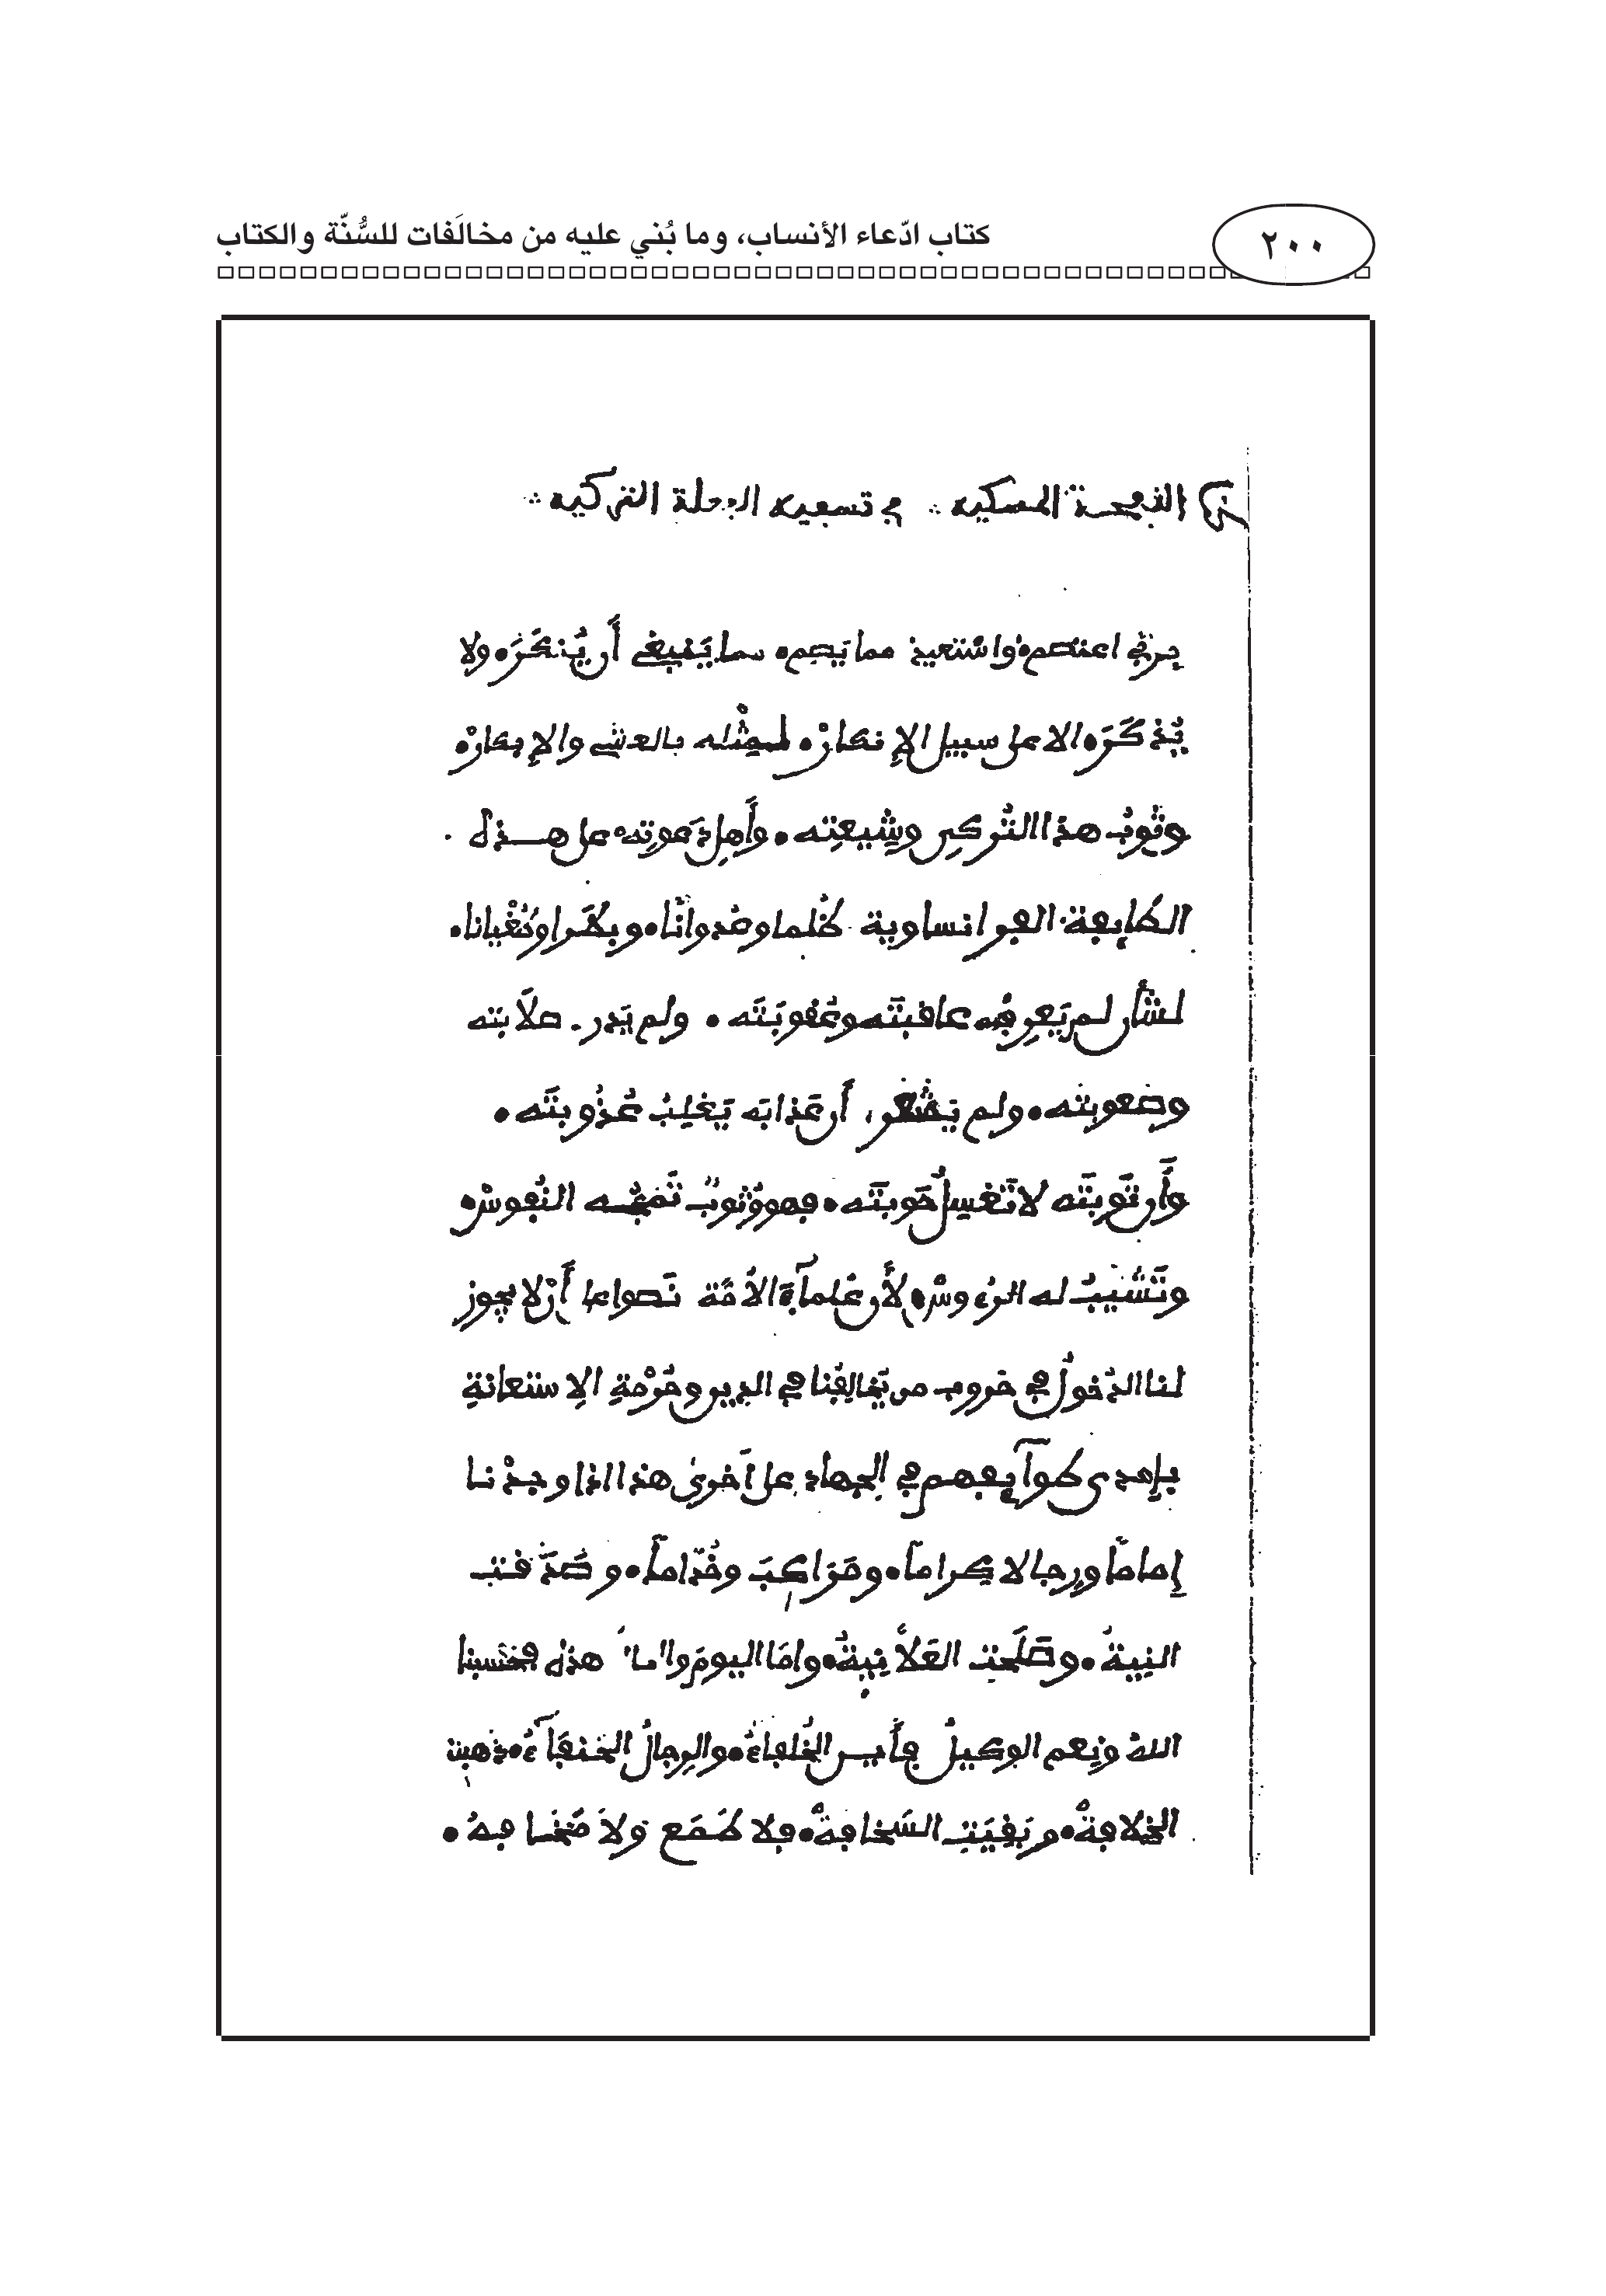 ٢٠٠
كتاب ادّعاء الأنساب، وما بُني عليه من مخالَفات للسُّنّة والكتاب
النفحة المسكية في السفرة التركية
اعتصم واستعيذ مما يَصِم مما يَنبغي أن يُنكَرَ ولا
يُذكَرَ الا على سبيل الإنكارْ لمِثْله بالعشي والإبكارْ
وثوبُ هذا التركي وشِيعتِه وأهلِ دَعوتِه على هذه
الطايفة الفرانساوية ظُلما وعُدوانًا وبطَرا وطُغيانا
لشأن لم يَعرِف عاقبتَه وعُقوبَتَه ولم يَدر صلاَبته
وصعوبته ولم يَشعر أن عَذابَه يَغلِبُ عُذوبتَه
وأن تَوبتَه لا تَغسِلُ حَوبتَه فهو وُثوبٌ النُّفوسْ
وتَشيبُ له الرُءوسْ لأن عُلمآءَ الأمّة نَصوا على أنْ لا يجوز
لنا الدُخولُ في حُروب من يُخالِفُنا في الدين وحُرْمةِ الإستعانةِ
بإحدى طوآيفهم في الجهاد على أخرى هذا اذا وجدْنا
إماماً ورجالا كراماً ومَراكبَ وخُدّاماً وصَدَقت
النِيةُ وصَلَحت العَلاَنِيةُ وامَا اليومَ هذه فحَسبنا
اللهُ ونِعم الوكيلُ فأين الخُلفاءُ والرِجالُ الحُنفآءُ ذهبت
الخِلافةُ وبَقيَت السَخافةُ فلا طَمَع ولاَ مَخافهُ